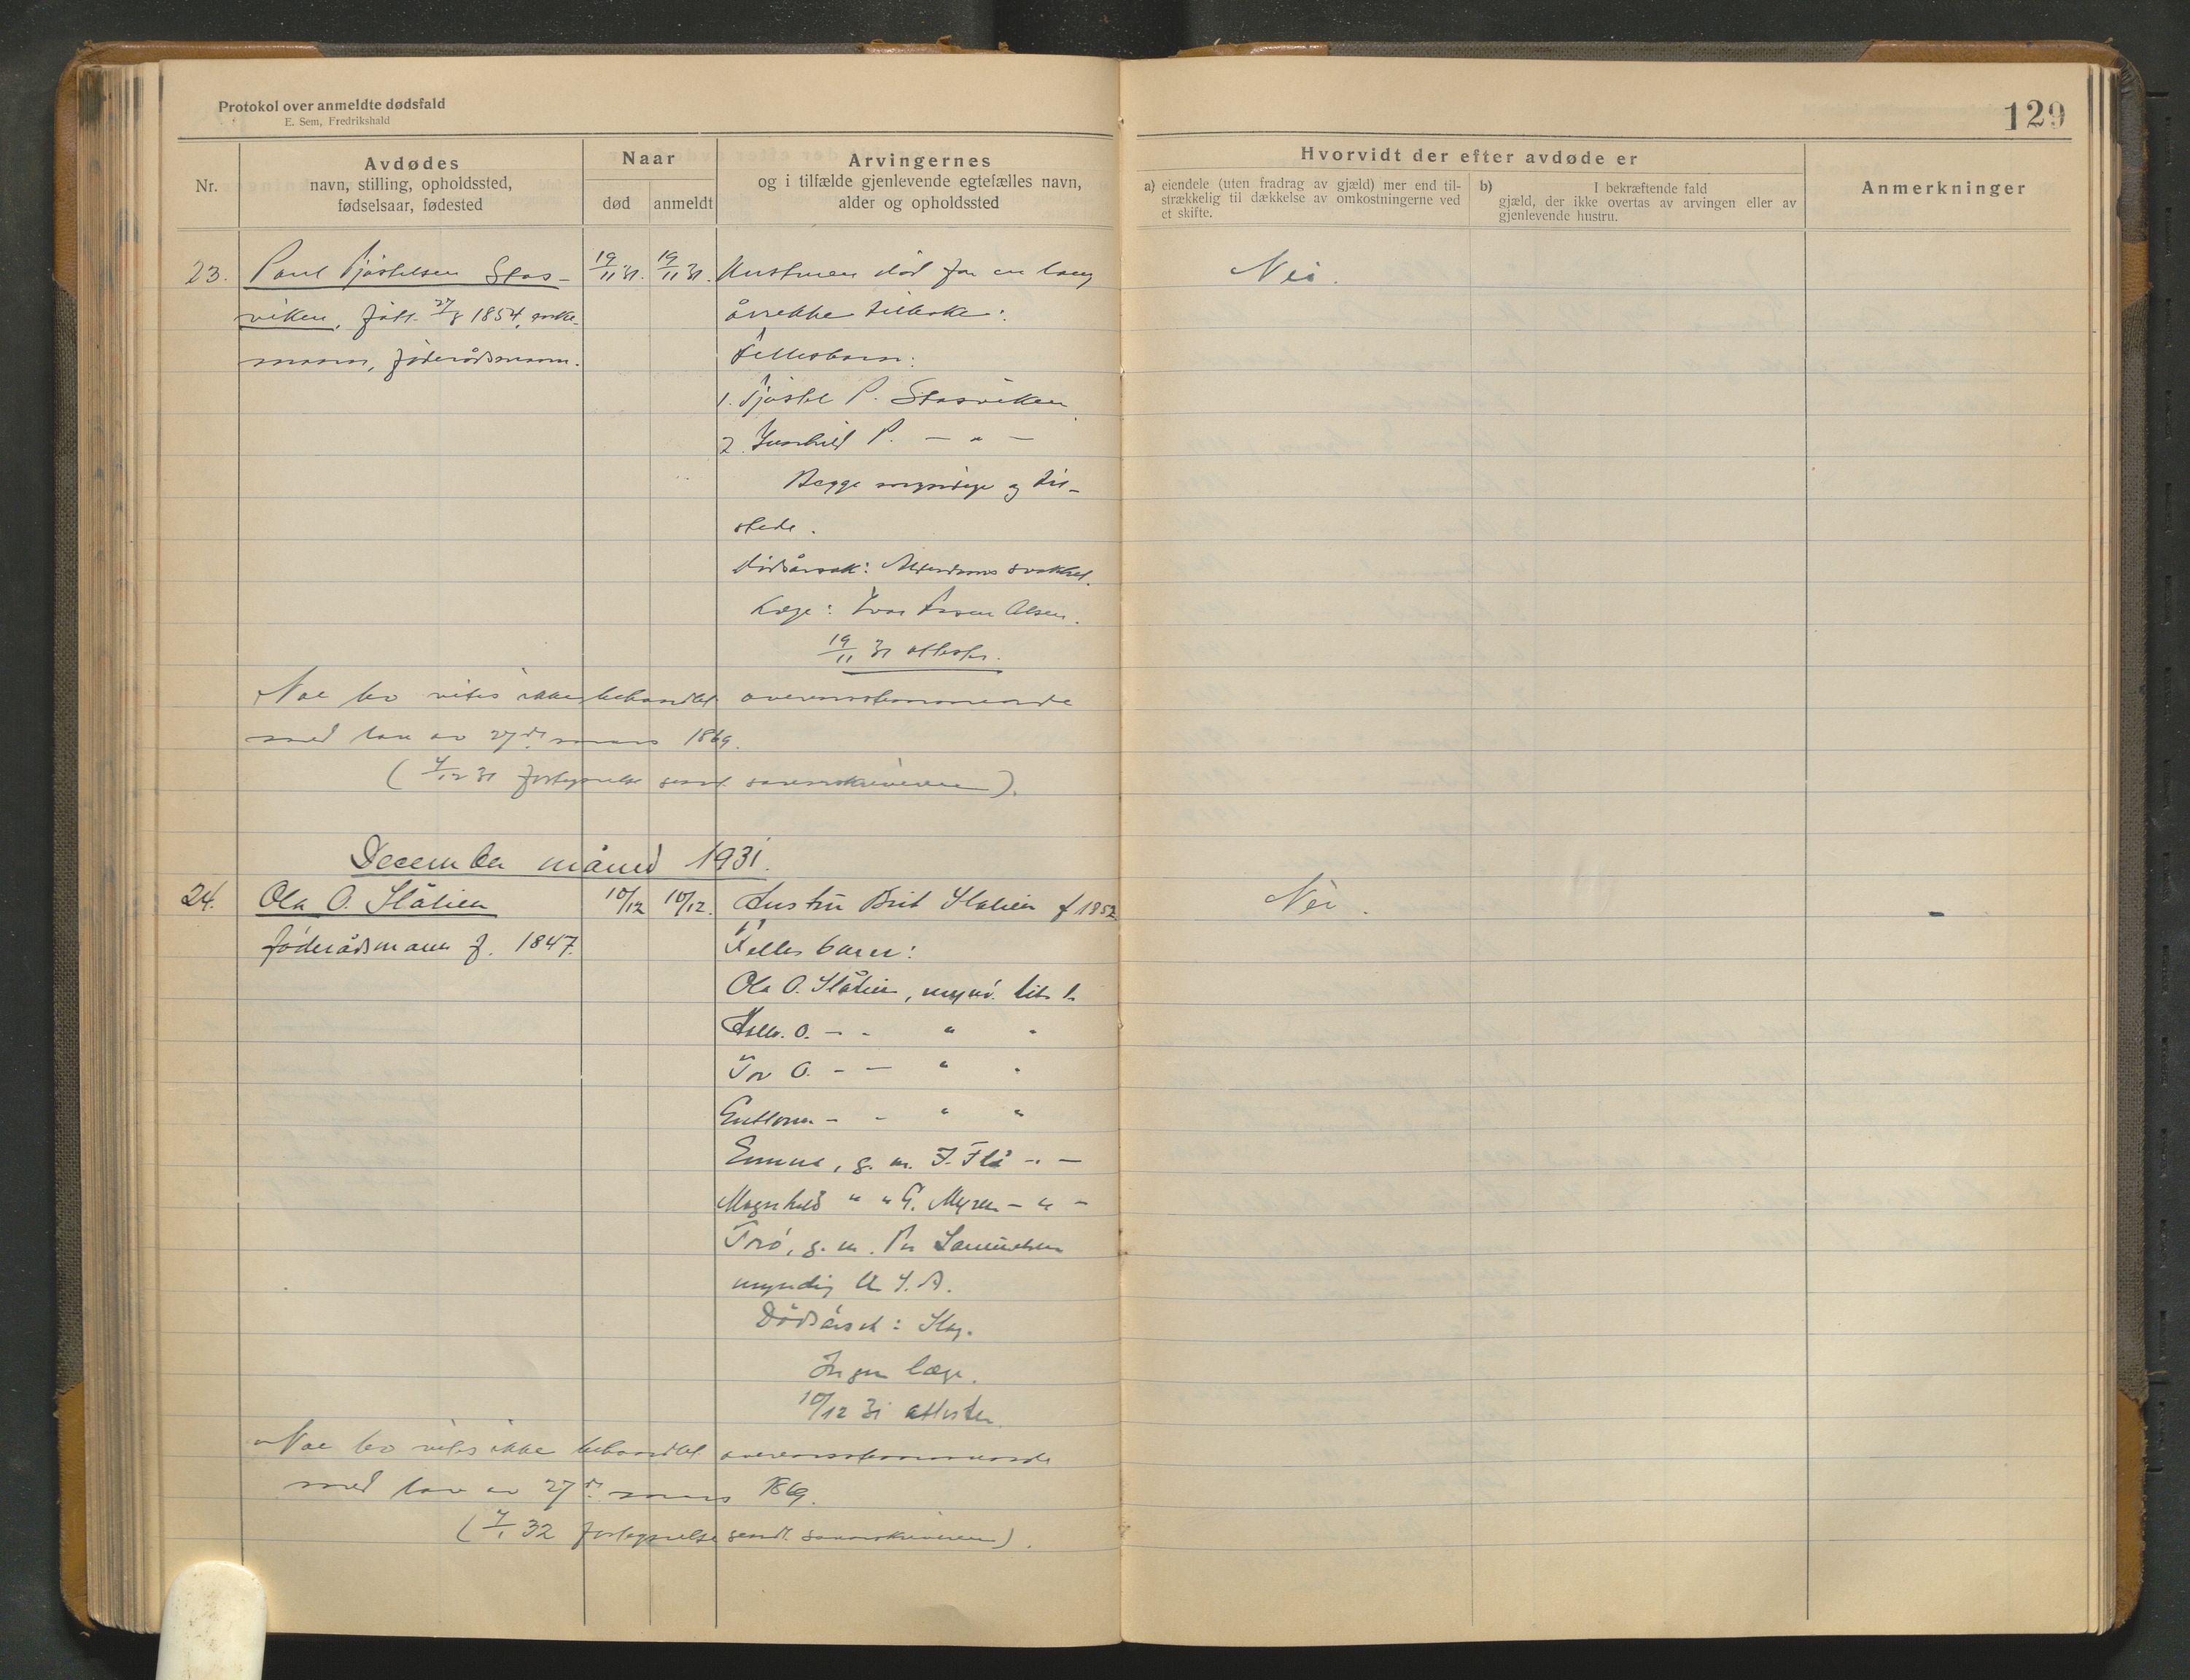 Protokol over anmeldte dødsfald
E. Sem, Fredrikshald
129
Nr.
Avdødes
navn, stilling, opholdssted,
fødselsaar, fødested
Naar
død
anmeldt
Arvingernes
og i tilfælde gjenlevende egtefælles navn,
alder og opholdssted
Hvorvidt der efter avdøde er
a) eiendele (uten fradrag av gjæld) mer end til-
strækkelig til dækkelse av omkostningerne ved
et skifte.
b) I bekræftende fald
gjæld, der ikke overtas av arvingen eller av
gjenlevende hustru.
Anmerkninger
23. Paul Tjøstelsen Stas- 19/11 31. 19/11 31. Hustruen død for en lang Nei.
viken, født 27/8 1854, enke- årrekke tilbake.
mann, føderådsmann. Fellesbarn:
1. Tjøstel P. Stasviken
2. Gunhild P. — " —
Begge myndige og til-
stede.
Dødsårsak: Alderdoms svakhet.
Læge: Olsen.
19/11 31 attester.
Noe bo vites ikke behandlet overensstemmende
med lov av 27de mars 1869.
(4/12 31 fortegnelse sendt sorenskriveren).
December måned 1931.
24. Ola O. Slåtien 10/12 10/12. Hustru Brit Slåtien f 1852 Nei. -
føderådsmann f. 1847. Felles barn:
Ola O. Slåtien, mynd. tilst.
O. - - " "
Tov O. - — " "
- - " "
Emma, g. m. J. Flå - . —
Magnhild " " G. Myren - " -
Toro, g. m. Per Samuelsen
myndig U. S. A.
Dødsårsak: Slag.
Ingen læge.
10/12 31 attester.
Noe bo vites ikke behandlet overensstemmende
med lov av 27de mars 1869.
(4/1 32 fortegnelse sendt sorenskriveren).